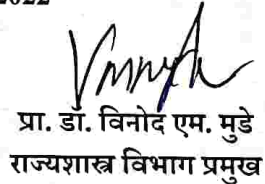 2022
प्रा. डॉ. विनोद एम. मुडे
राज्यशास्त्र विभाग प्रमुख